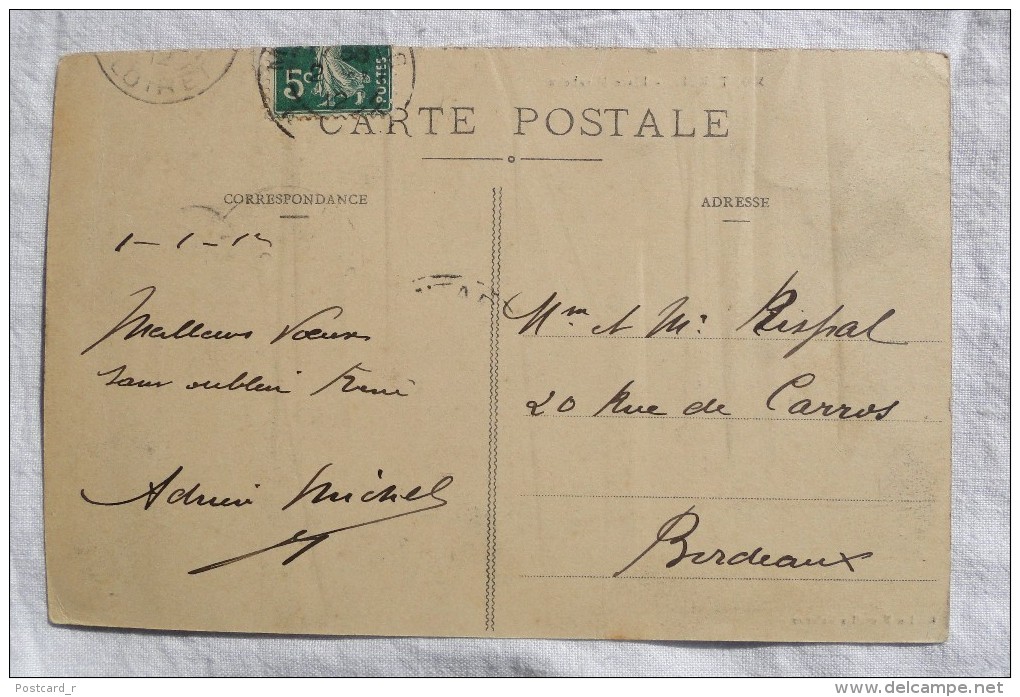 LOIRET
5c
POSTES
CARTE POSTALE
CORRESPONDANCE
ADRESSE
1-1-12
Meilleurs Vœux
sans oublier René
Adrien Michel
Mm et Mr Rispal
20 Rue de Carros
Bordeaux
Postcard_r
delcampe.net